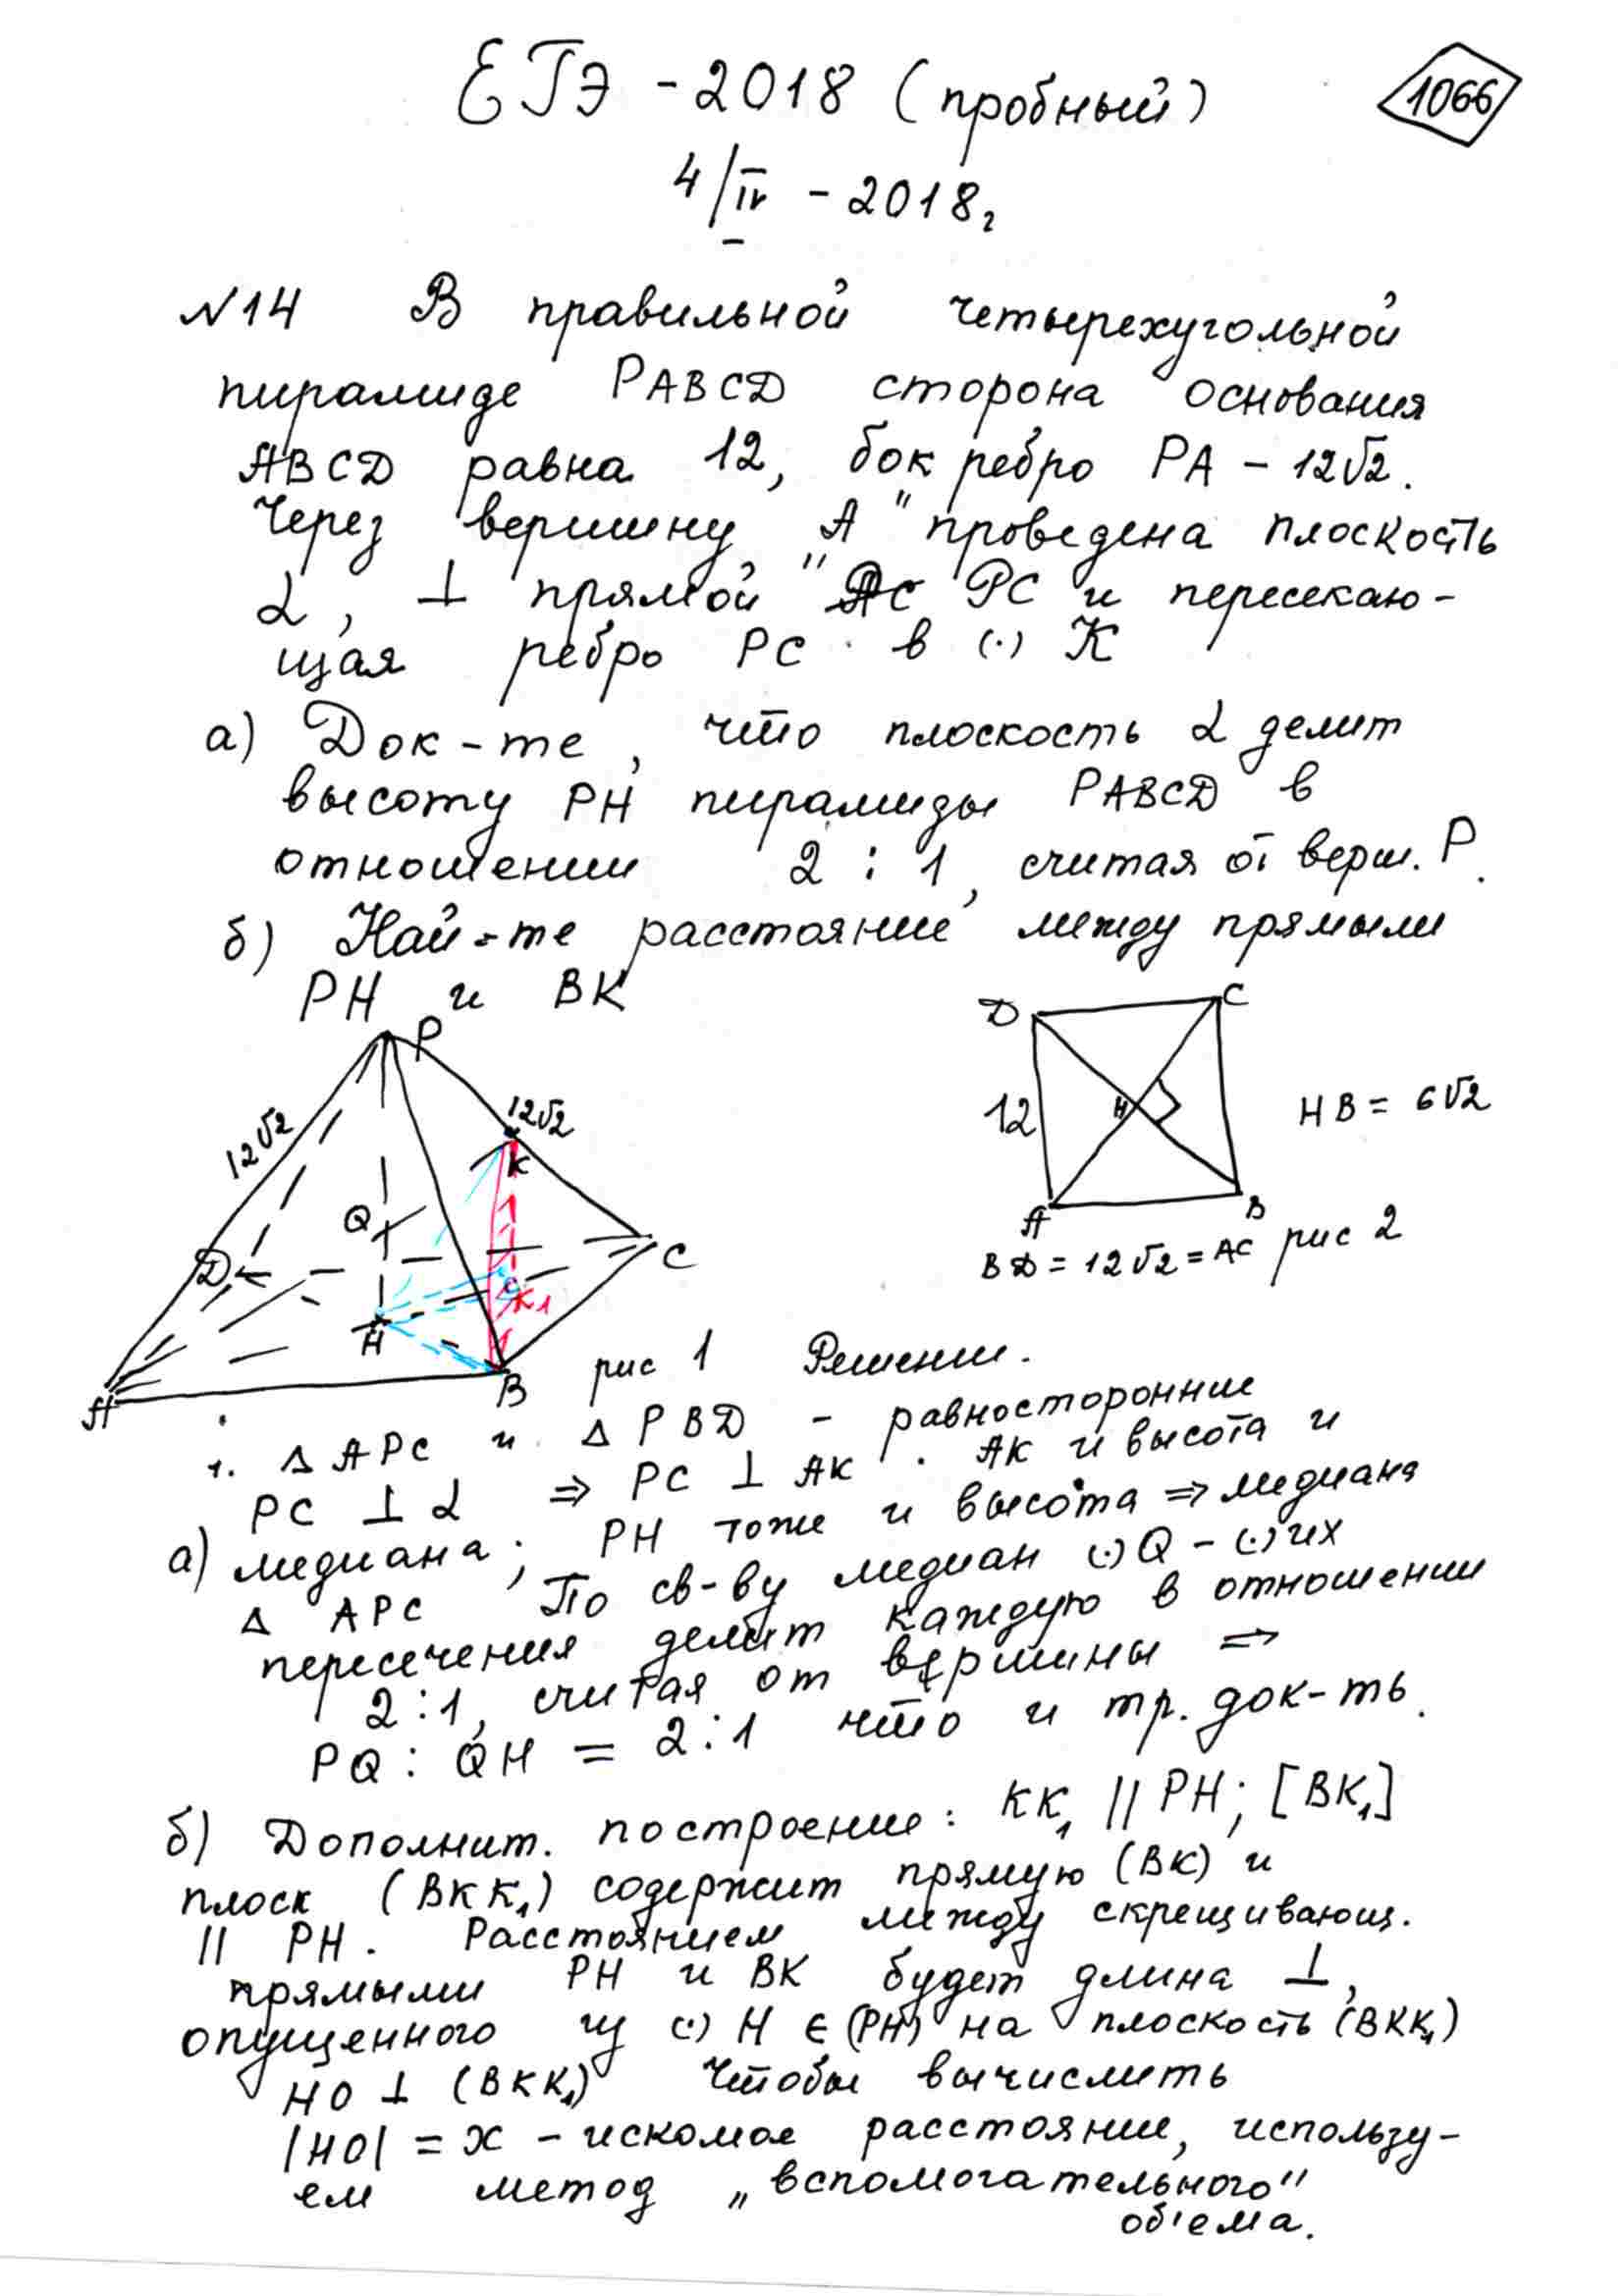 ЕГЭ - 2018 (пробный)
1066
4/IV - 2018г
N14 В правильной четырехугольной
пирамиде PABCD сторона основания
ABCD равна 12, бок ребро PA - 12√2.
Через вершину "A" проведена плоскость
α, ⊥ прямой PC и пересекаю-
щая ребро PC в (·) K
а) Док-те, что плоскость α делит
высоту PH пирамиды PABCD в
отношении 2 : 1, считая от верш. P.
б) Най-те расстояние между прямыми
PH и BK
P
12√2
12√2
K
Q
D
C
K₁
H
A
B
рис 1
D
C
12
H
HB = 6√2
A
B
BD = 12√2 = AC
рис 2
Решение.
1. △ APC и △ PBD - равносторонние
PC ⊥ α ⇒ PC ⊥ AK . AK и высота и
а) медиана; PH тоже и высота ⇒ медиана
△ APC По св-ву медиан (·) Q - (·) их
пересечения делит каждую в отношении
2:1, считая от вершины ⇒
PQ : QH = 2:1 что и тр. док-ть.
б) Дополнит. построение: KK₁ || PH; [BK₁]
плоск (BKK₁) содержит прямую (BK) и
|| PH. Расстоянием между скрещивающ.
прямыми PH и BK будет длина ⊥,
опущенного из (·) H ∈ (PH) на плоскость (BKK₁)
HO ⊥ (BKK₁) Чтобы вычислить
|HO| = x - искомое расстояние, использу-
ем метод „вспомогательного"
об'ема.